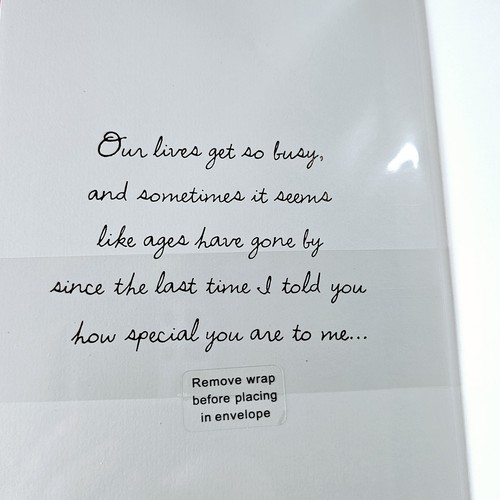 Our lives get so busy,
and sometimes it seems
like ages have gone by
since the last time I told you
how special you are to me...
Remove wrap
before placing
in envelope